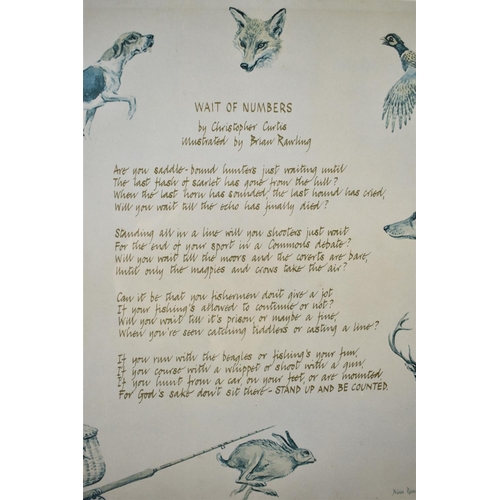 WAIT OF NUMBERS
by Christopher Curtis
Illustrated by Brian Rawling
Are you saddle-bound hunters just waiting until
The last flash of scarlet has gone from the hill?
When the last horn has sounded, the last hound has cried,
Will you wait till the echo has finally died?
Standing all in a line will you shooters just wait
For the end of your sport in a Commons debate?
Will you wait till the moors and the coverts are bare,
Until only the magpies and crows take the air?
Can it be that you fishermen don't give a jot
If your fishing's allowed to continue or not?
Will you wait till it's prison, or maybe a fine,
When you're seen catching tiddlers or casting a line?
If you run with the beagles or fishing's your fun,
If you course with a whippet or shoot with a gun,
If you hunt from a car, on your feet, or are mounted,
For God's sake don't sit there - STAND UP AND BE COUNTED.
Brian